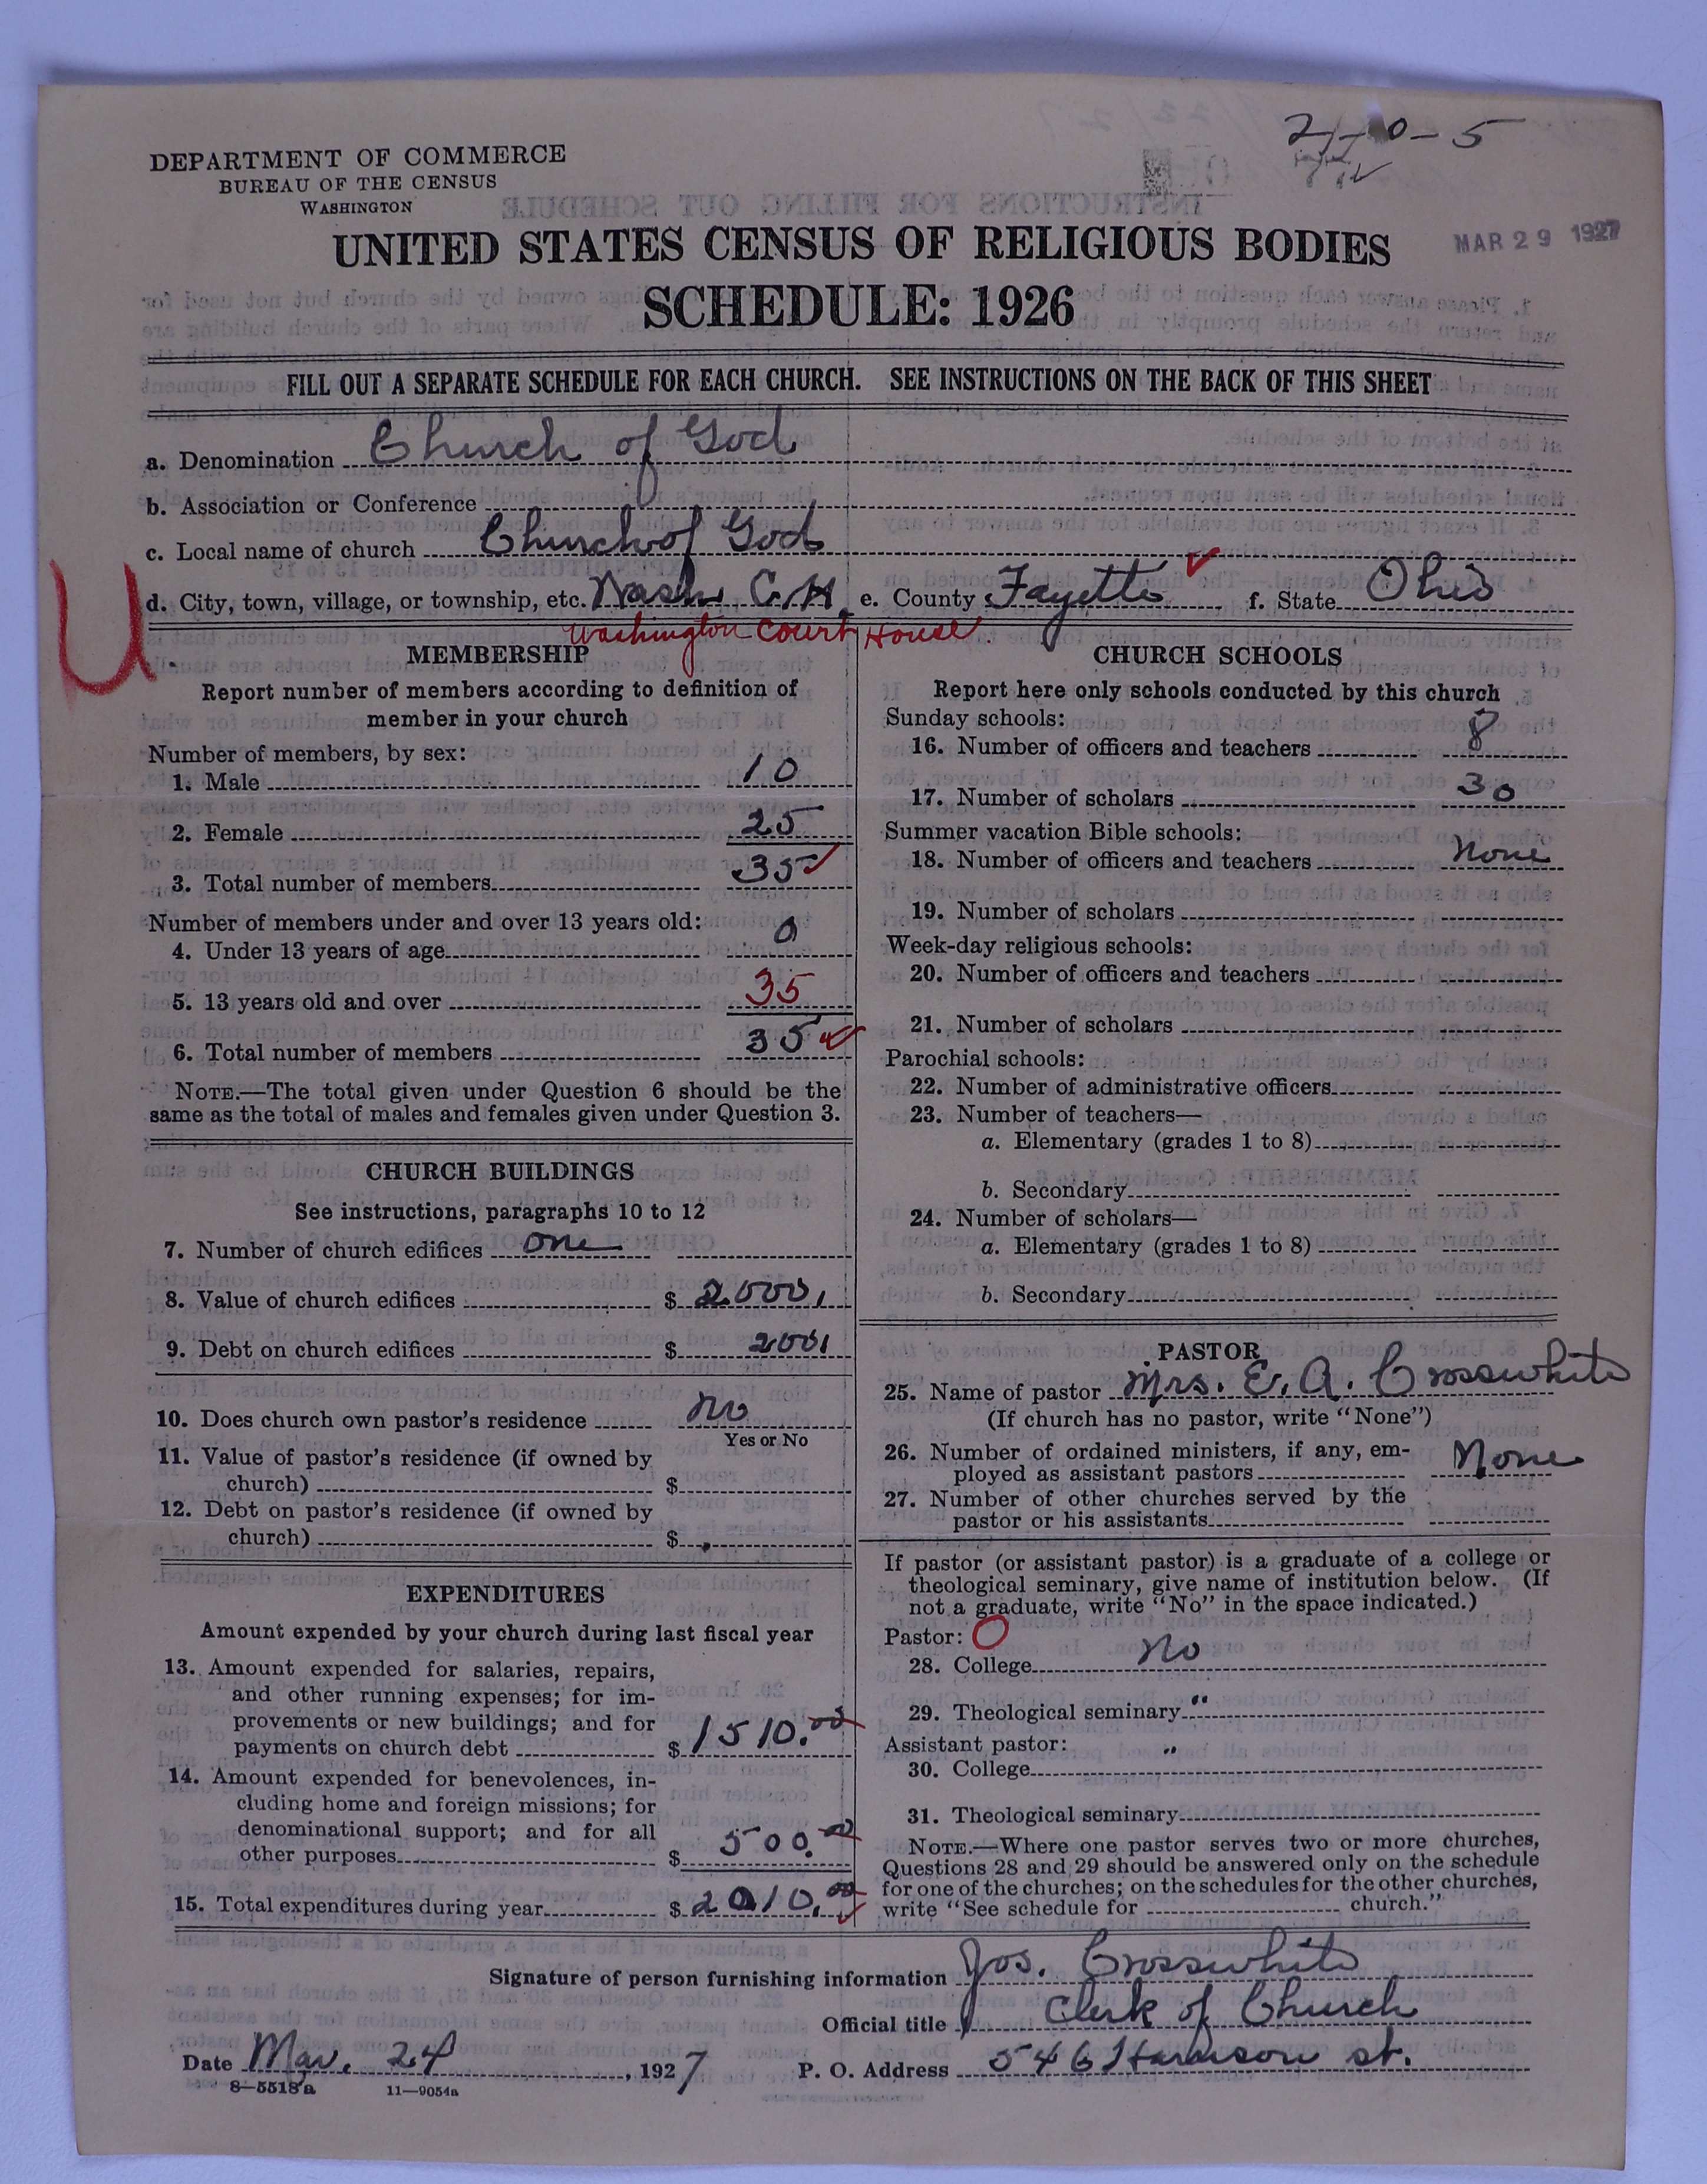 2-0-5
DEPARTMENT OF COMMERCE
BUREAU OF THE CENSUS
WASHINGTON
UNITED STATES CENSUS OF RELIGIOUS BODIES
MAR 29 1927
SCHEDULE: 1926
FILL OUT A SEPARATE SCHEDULE FOR EACH CHURCH. SEE INSTRUCTIONS ON THE BACK OF THIS SHEET
a. Denomination Church of God
b. Association or Conference
c. Local name of church Church of God
d. City, town, village, or township, etc. Wash. C. H. e. County Fayette f. State Ohio
U
Washington Court House
MEMBERSHIP
Report number of members according to definition of
member in your church
Number of members, by sex:
1. Male 10
2. Female 25
3. Total number of members 35
Number of members under and over 13 years old:
4. Under 13 years of age 0
5. 13 years old and over 35
6. Total number of members 35
NOTE.—The total given under Question 6 should be the
same as the total of males and females given under Question 3.
CHURCH BUILDINGS
See instructions, paragraphs 10 to 12
7. Number of church edifices one
8. Value of church edifices $ 2000,
9. Debt on church edifices $ 200,
10. Does church own pastor's residence no
Yes or No
11. Value of pastor's residence (if owned by
church) $
12. Debt on pastor's residence (if owned by
church) $
EXPENDITURES
Amount expended by your church during last fiscal year
13. Amount expended for salaries, repairs,
and other running expenses; for im-
provements or new buildings; and for
payments on church debt $ 1510.00
14. Amount expended for benevolences, in-
cluding home and foreign missions; for
denominational support; and for all
other purposes $ 500.00
15. Total expenditures during year $ 2010.00
CHURCH SCHOOLS
Report here only schools conducted by this church
Sunday schools:
16. Number of officers and teachers 8
17. Number of scholars 30
Summer vacation Bible schools:
18. Number of officers and teachers None
19. Number of scholars
Week-day religious schools:
20. Number of officers and teachers
21. Number of scholars
Parochial schools:
22. Number of administrative officers
23. Number of teachers—
a. Elementary (grades 1 to 8)
b. Secondary
24. Number of scholars—
a. Elementary (grades 1 to 8)
b. Secondary
PASTOR
25. Name of pastor Mrs. E. A. Crosswhite
(If church has no pastor, write "None")
26. Number of ordained ministers, if any, em-
ployed as assistant pastors None
27. Number of other churches served by the
pastor or his assistants
If pastor (or assistant pastor) is a graduate of a college or
theological seminary, give name of institution below. (If
not a graduate, write "No" in the space indicated.)
Pastor: O
28. College No
29. Theological seminary "
Assistant pastor: "
30. College
31. Theological seminary
NOTE.—Where one pastor serves two or more churches,
Questions 28 and 29 should be answered only on the schedule
for one of the churches; on the schedules for the other churches,
write "See schedule for church."
Signature of person furnishing information Jos. Crosswhite
Official title Clerk of Church
Date Mar. 24, 1927 P. O. Address 546 Harrison st.
8—5518 a 11—9054a